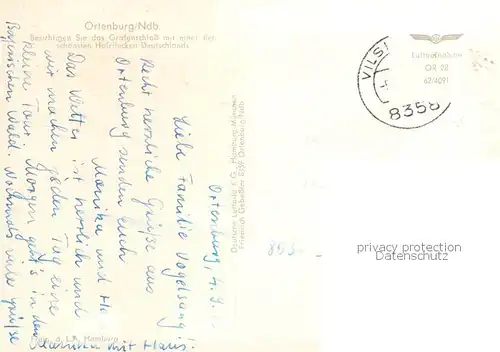 Ortenburg/Ndb.
Besichtigen Sie das Grafenschloß mit einer der
schönsten Holzdecken Deutschlands
Luftaufnahme
OR 28
62/4091
VILS
8358
Ortenburg, 4.9.
Liebe Familie Vogelsang
Recht herzliche Grüße aus
Ortenburg senden Euch
Monika und Ha
Das Wetter ist herrlich und
wir machen jeden Tag eine
kleine Tour. Morgen geht's in den
Bayerischen Wald. Nochmals viele Grüße
Monika mit Hans.
Deutsche Luftbild K.G., Hamburg-München
Friedrich Gebeßler 8359 Ortenburg/Ndb.
Hamburg
893
privacy protection
(Datenschutz)